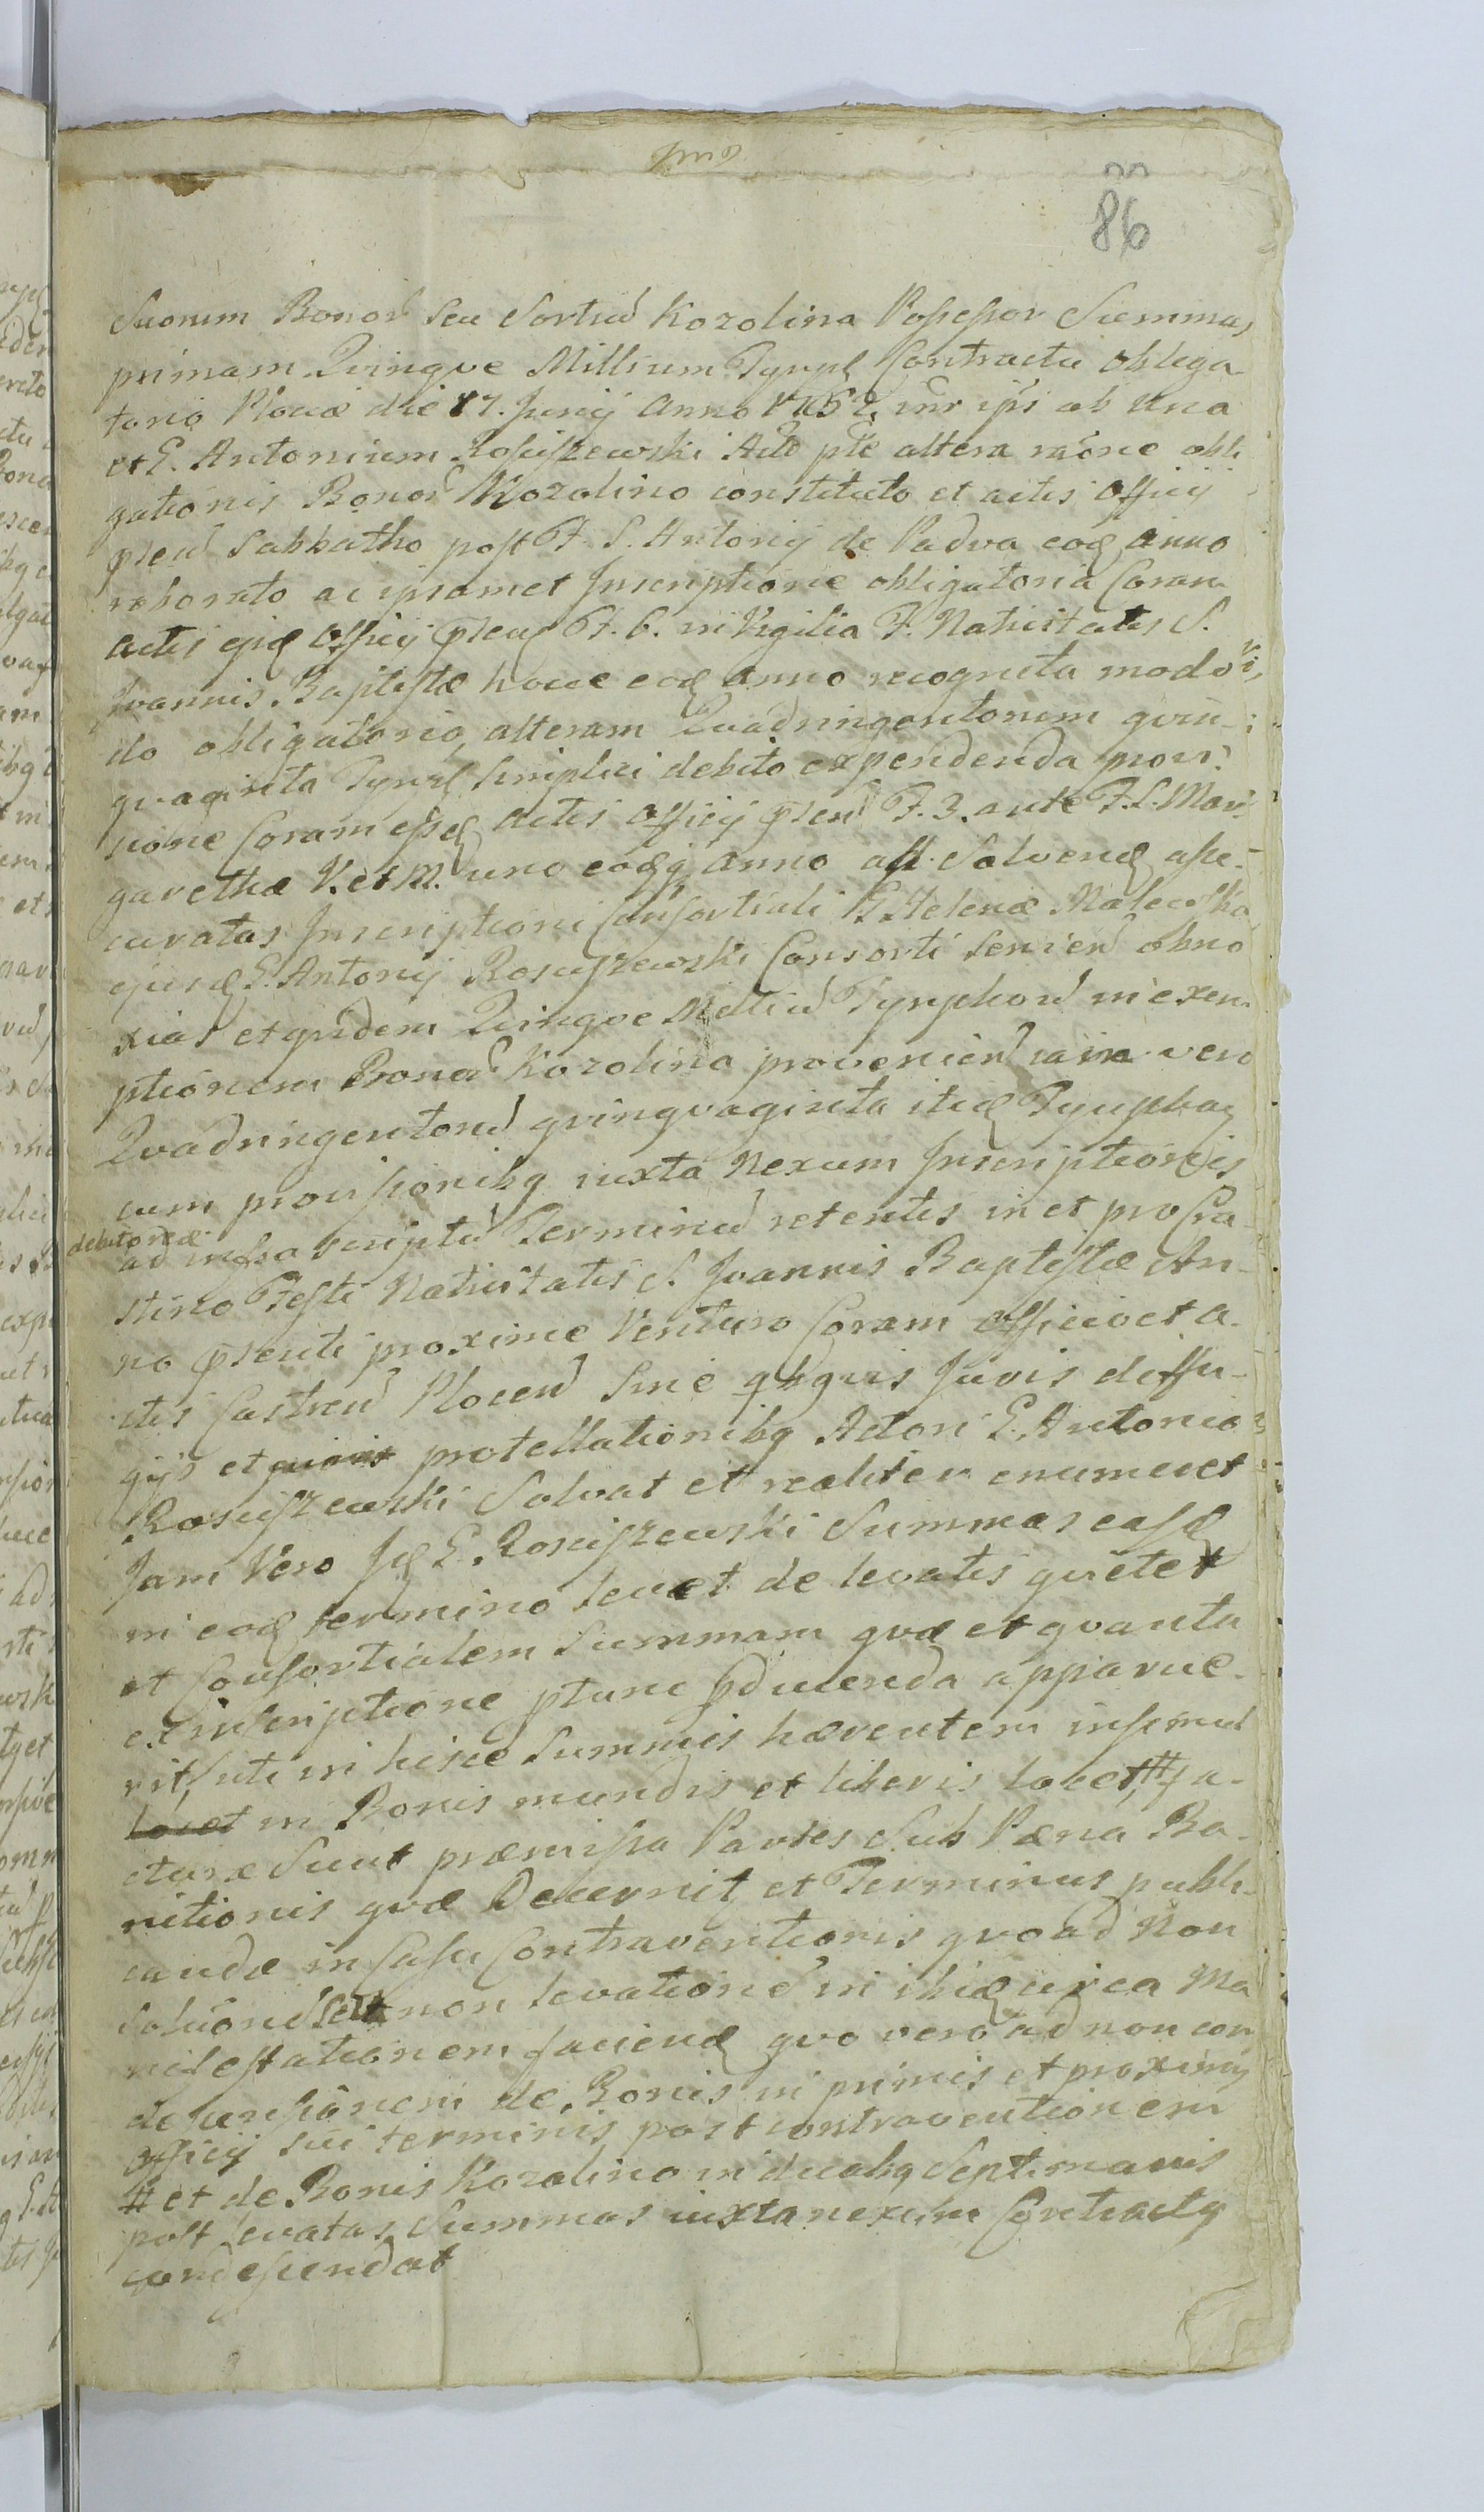 86
Suorum Bonor seu Sortiu Kozolina Possessor Summas
primam Qvinqve Millium Tymph Contractu obliga
torio Plociae die 17. Junij Anno 1752 inr ips ab una
et G. Antonium Rosciszewski Acto pte altera raone obli
gationis Bonor Kozolino constituto et actis Officij
psen Sabbatho post F. S. Antonij de Padva eod anno
roborato ac ipsamet Inscriptione obligatoria Coram
actis ejusd Officij psen F. 6. in Vigilia F. Nativitatis S.
Joannis Baptistae hocce eod anno recognita modo
do obligatorio, alteram Qvadringentorum qvin-
qvaginta Tymph simplici debito expendenda provi
sione Coram eisd actis Officij psen F. 3. ante F. S. Mar
garethae V. et M. uno eodq anno Solvend asse-
curatas Inscriptioni Consortiali G. Helenae Malewska
ejusd G. Antonij Rosciszewski Consorti Servien obno
xias et qvidem Qvinqve Milliu Tymphoru in exem
ptionem Bonor Kozolino provenien vero
Qvadringentoru qvinqvaginta itid Tymphor
cum provisionibq iuxta Nexum Inscriptionis
debitoreae
ad infra scriptu Terminu retentis in et pro Cra-
stino Festi Nativitatis S. Joannis Baptistae An-
no psenti proxime Venturo Coram Officio et a-
ctis Castren Plocen Sine qbqvis Juris deffu-
gijs et protellationibq Actori G. Antonio
Rosciszewski Solvat et realiter enumeret
Jam Vero Id G. Rosciszewski Summas easd
in eod termino levet de levatis qvietet
et Consortialem Summam qvae et qvanta
ex inscriptione ptunc pducenda apparue-
rit, uti in hisce Summis haerentem insimul
locet in Bonis mundis et liberis locet, # fa-
cturae Sunt praemissa Partes Sub Paena Ba-
nitionis qvae Decernit et Terminus publi-
candae in Casu Contraventionis qvoad Non
Solutione non levatione in ibid circa Ma
nifestationem faciend qvo vero ad non con
descensionem de Bonis in primis et proximis
Officij sui terminis post contraventionem
# et de Bonis Kozolino in duabq Septimanis
post levatas Summas iuxta nexum Contractq
condescendat